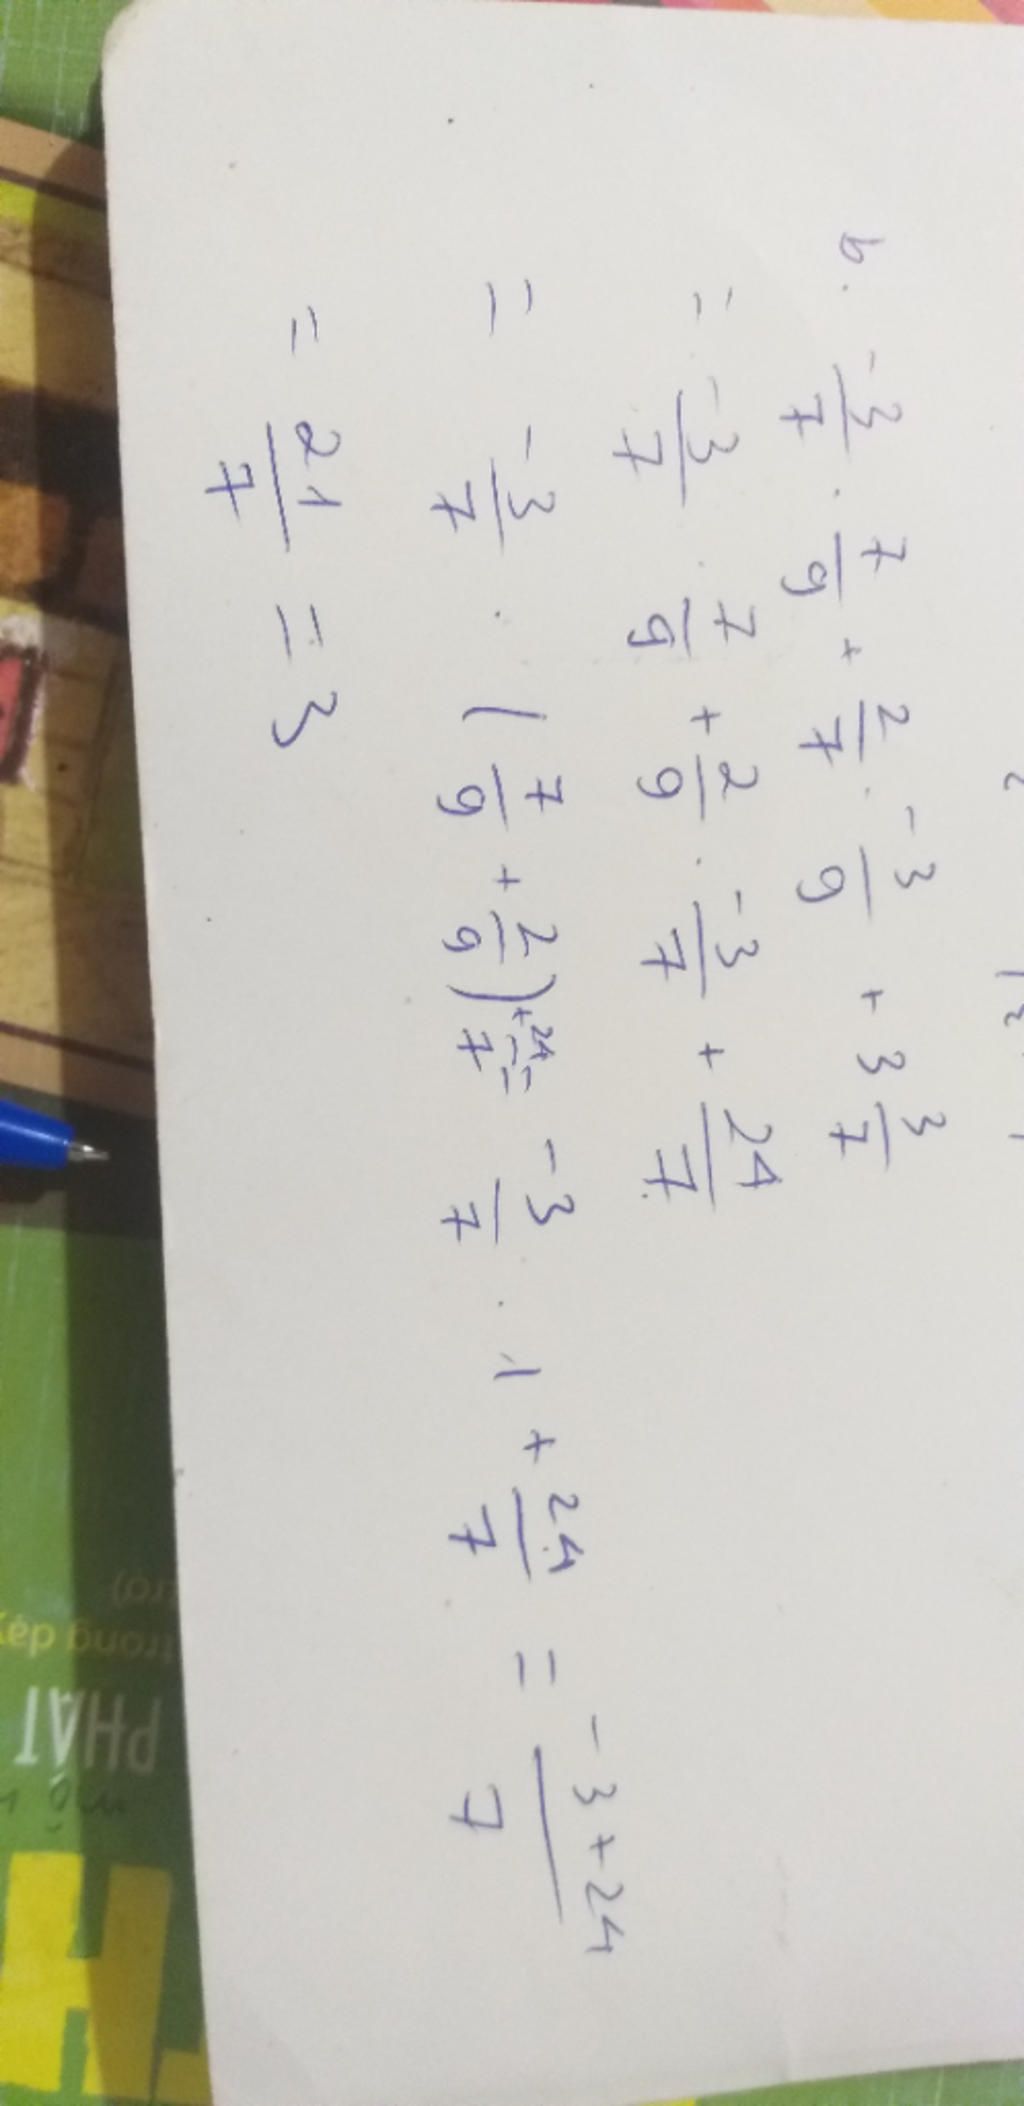 b. -3/7 . 7/9 + 2/7 . -3/9 + 3 3/7
= -3/7 . 7/9 + 2/9 . -3/7 + 24/7
= -3/7 . (7/9 + 2/9) + 24/7 = -3/7 . 1 + 24/7 = -3+24/7
= 21/7 = 3
trong
PHÁT